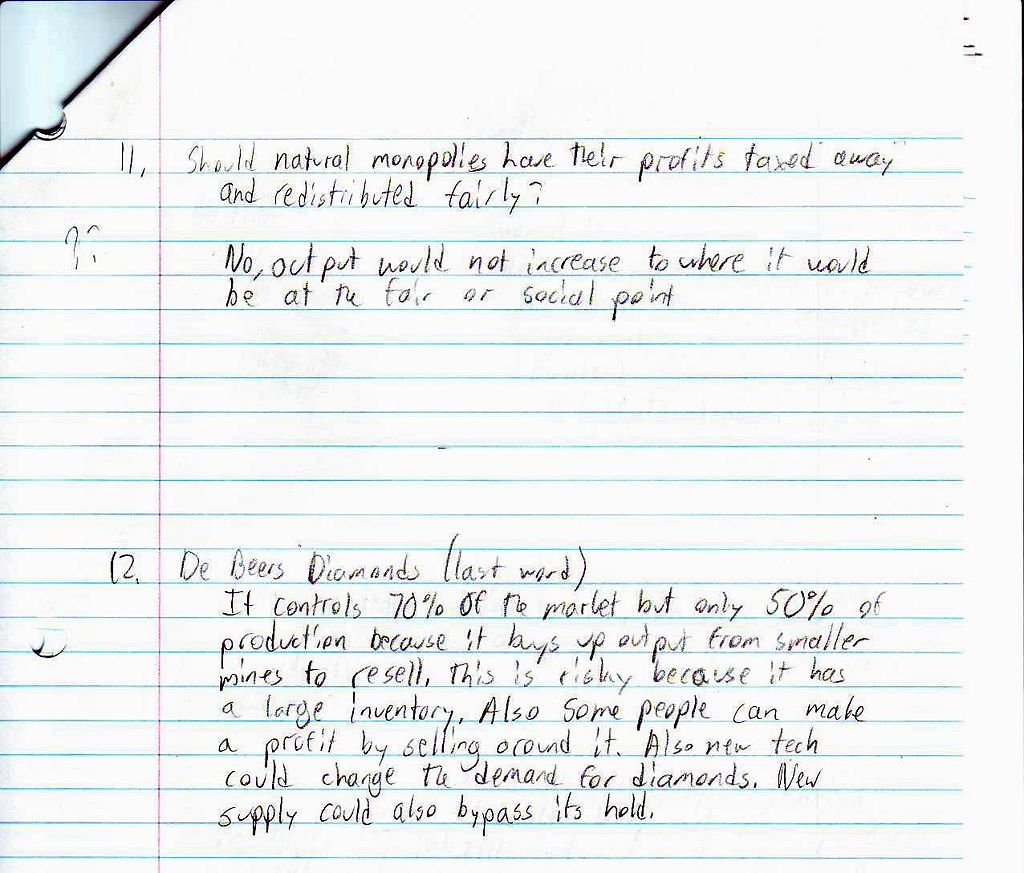 11. Should natural monopolies have their profits taxed "away"
and redistributed fairly?
??
No, output would not increase to where it would
be at the fair or social point
12. De Beers Diamonds (last word)
It controls 70% of the market but only 50% of
production because it buys up output from smaller
mines to resell. This is risky because it has
a large inventory. Also some people can make
a profit by selling around it. Also new tech
could change the demand for diamonds. New
supply could also bypass its hold.